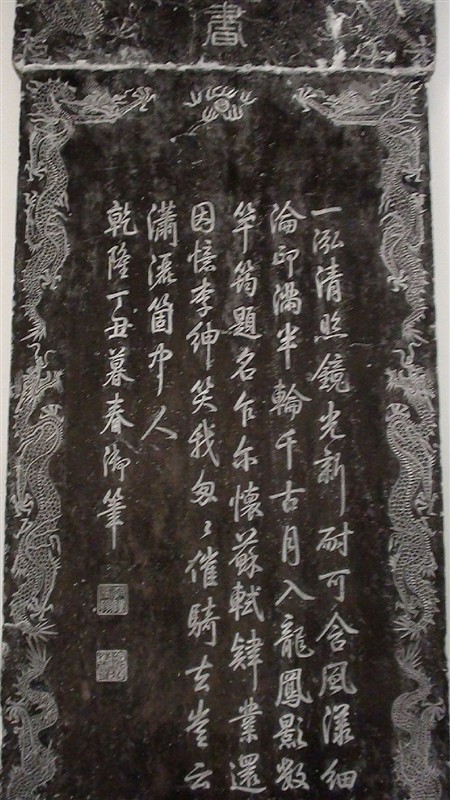 書
一泓清照鏡光新耐可含風漾細
淪印滿半輪千古月入龍鳳影數
竿筠題名乍尔懷蘇軾肄業還
因憶李紳笑我匆〻催騎去豈云
瀟灑箇中人
乾隆丁丑暮春御筆